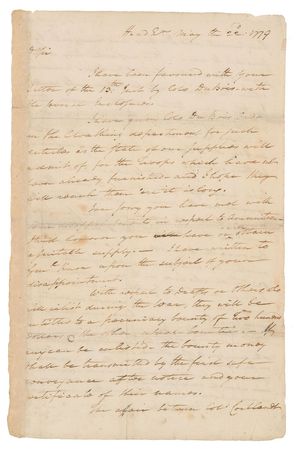 Head Qrs May the 22d 1779
Sir
I have been favoured with your
letter of the 13th Inst by Colo DuBois with
the several inclosures.
I have given Colo DuBois
in the Cloathing department for such
articles as the state of our supplies will
admit of, for the troops which have not
been already furnished and I hope they
will reach them ere it is long.
I am sorry you have not met with
in respect to
however you will have
a suitable supply. I have written to
Genl Knox upon the subject of your
disappointment.
With respect to Drafts or others who
will inlist during the war, they will be
entitled to a pecuniary bounty of two hundred
dollars
any can be enlisted the bounty money
shall be transmitted by the first safe
conveyance after notice and your
certificate of their names.
The affair between Col. Cortlandt